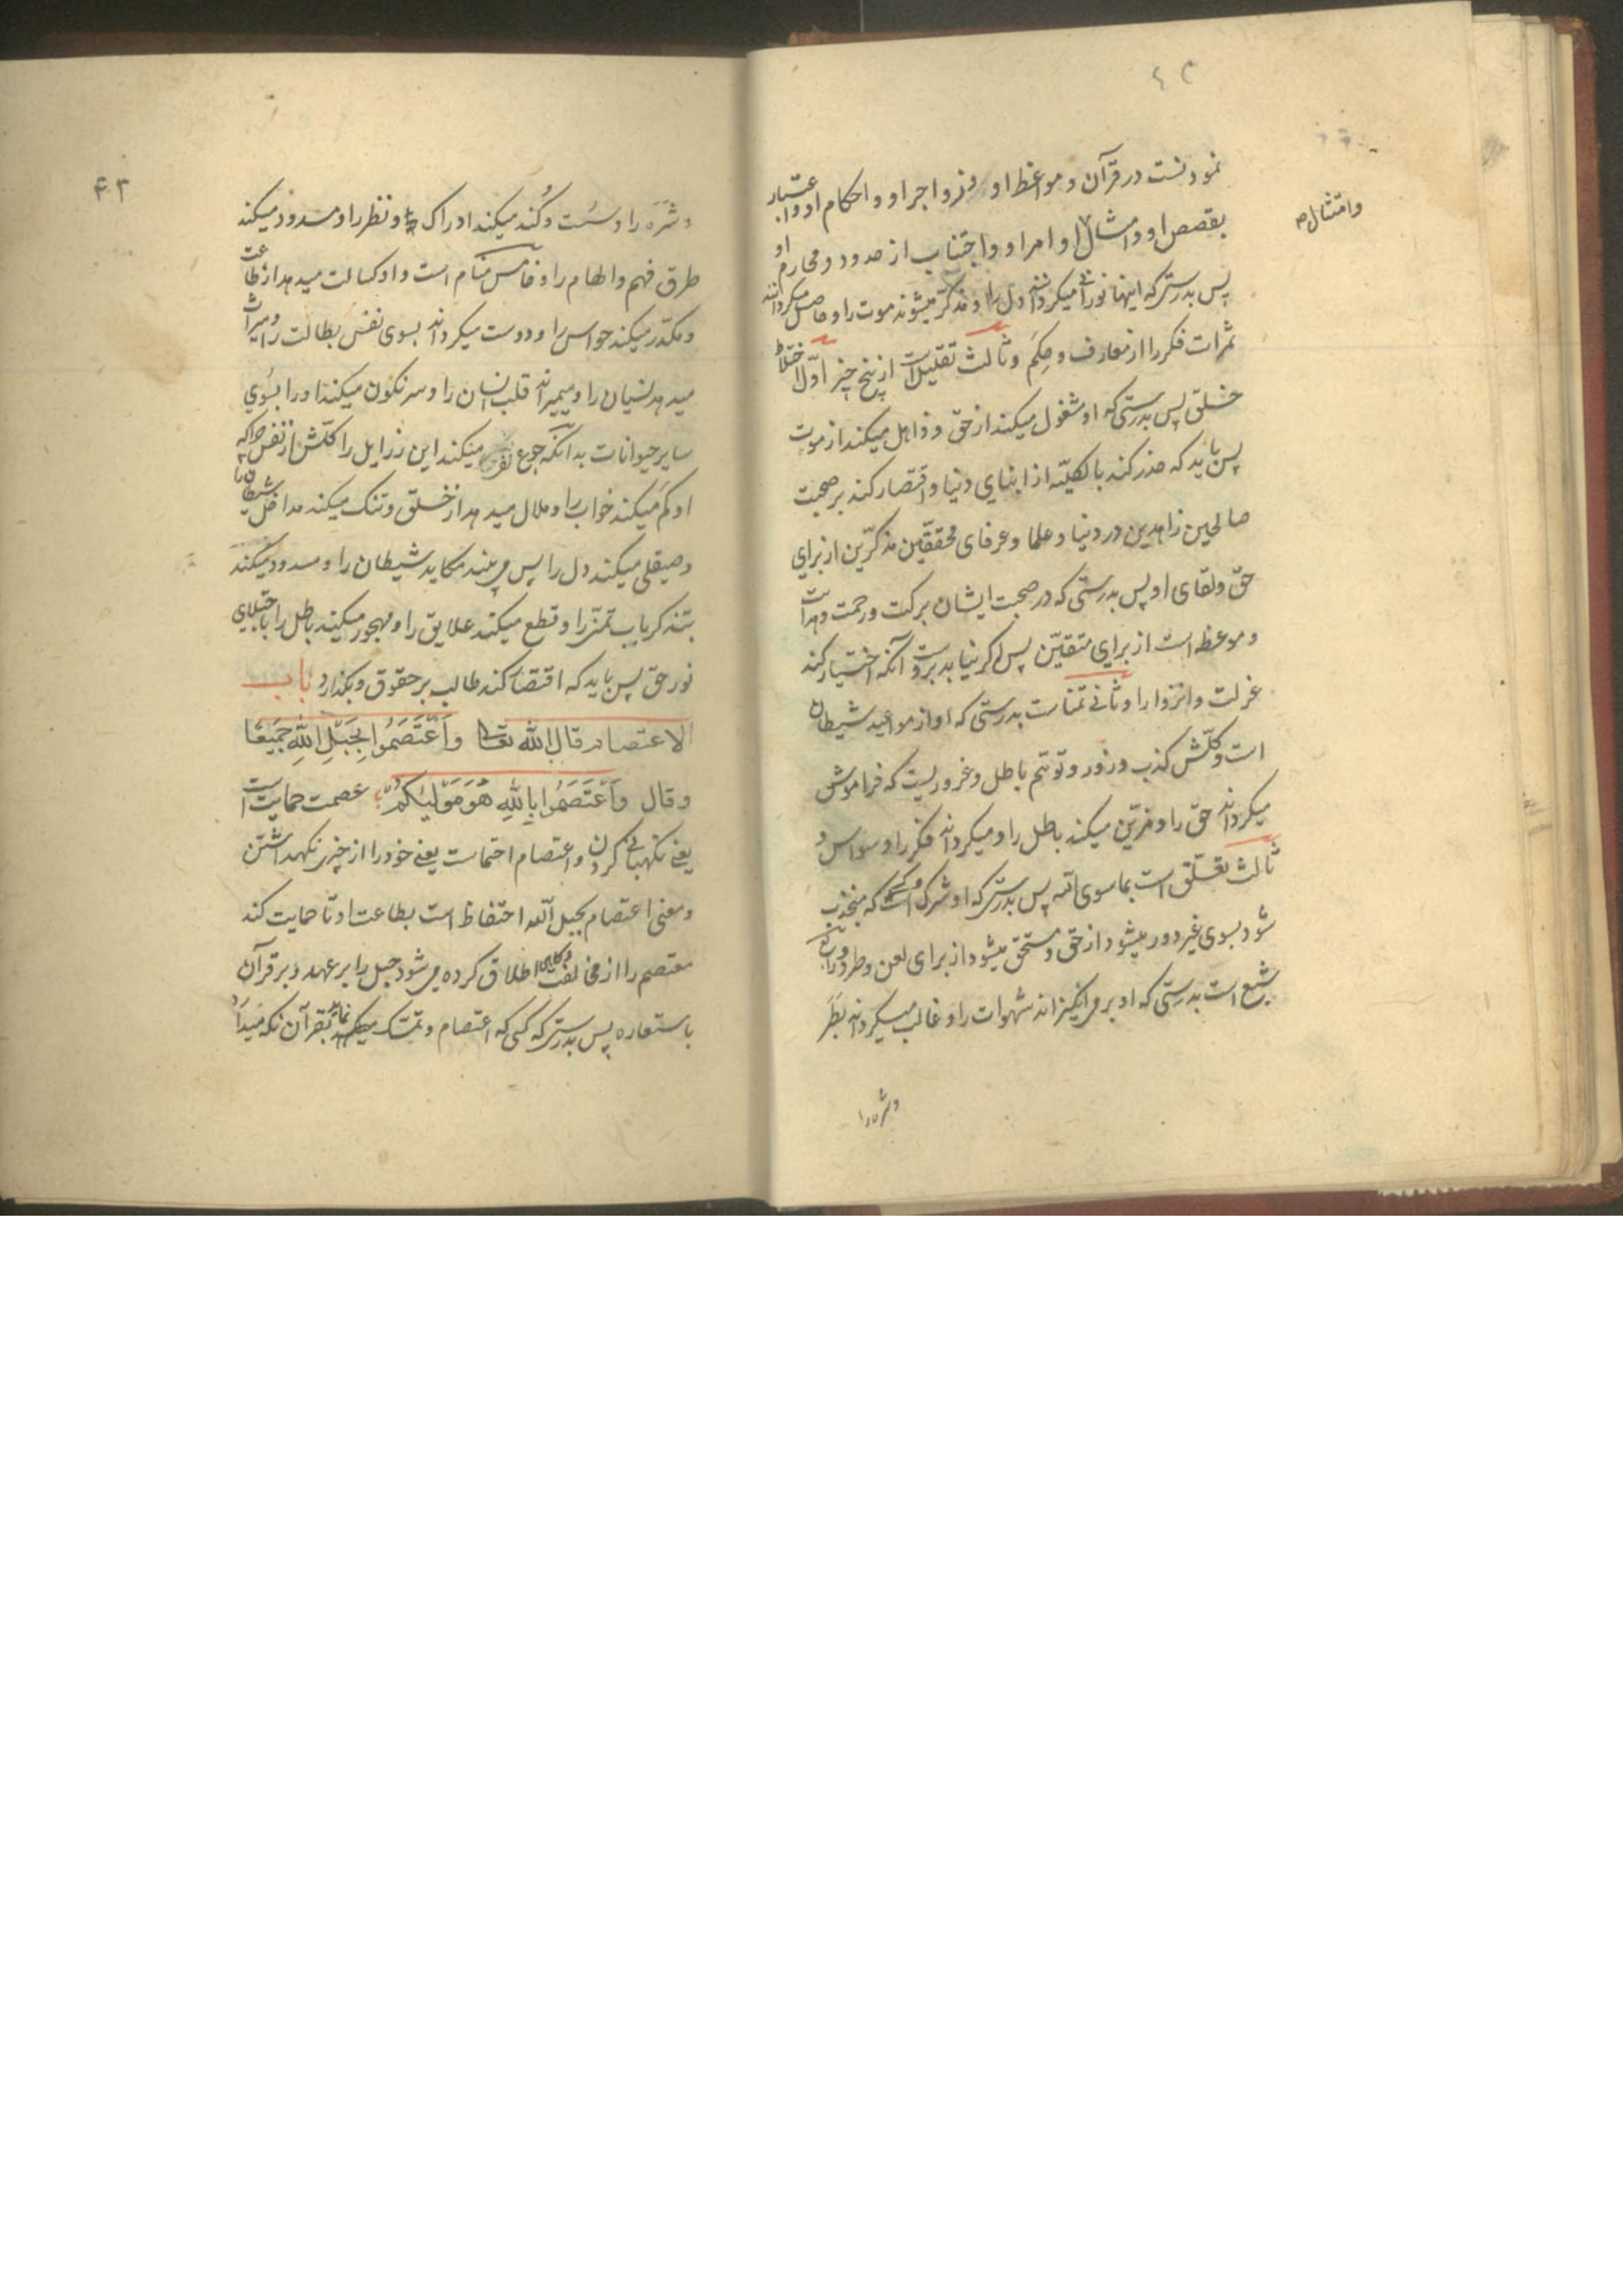 ۴۲
نمودنست در قرآن و مواعظ او و زواجر او و احکام او و اعتبار
بقصص او و امثال او امر او و اجتناب از حدود و محارم او
وامتثال
پس بدرستی که اینها نورانی میگردانند دل را و مذکر میشوند موت را و حاصل میگردانند
ثمرات فکر را از معارف و حِکَم و ثالث تقلیل است از پنج چیز اوّل اختلاط
خلق پس بدرستی که او مشغول میکند از حقّ و ذاهل میکند از موت
پس باید که حذر کند بالکلیّه از ابنای دنیا و اقتصار کند بر صحبت
صالحین زاهدین در دنیا و علما و عرفای محققین مذکّرین از برای
حقّ و لقای او پس بدرستی که در صحبت ایشان برکت و رحمت و هدایت
و موعظه است از برای متقیّن پس اگر نیابد بدرستی آنکه اختیار کند
عزلت و انزوا را و ثانی تمنّاست بدرستی که او از مواعید شیطان
است و کلّش کذب و زور و توهّم باطل و غروریست که فراموش
میگرداند حق را و مزیّن میکند باطل را و میگرداند فکر را وسواس و
ثالث تعلّق است بماسوی الله پس بدرستی که او شرک است و کسی که منجذب
شود بسوی غیر دور میشود از حق و مستحق میشود از برای لعن و طرد و رابع
شبع است بدرستی که او برمی انگیزاند شهوات را و غالب میگرداند بَطَرَ
و شره را
۴۳
و شَرَه را و سُست و کُند میکند ادراک را و نظر را و مسدود میکند
طرق فهم و الهام را و خامس منام است و او کسالت میدهد از طاعت
و مکدّر میکند حواس را و دوست میگرداند بسوی نفس بطالت را و میراث
میدهد نسیان را و میمیراند قلب انسان را و سرنکون میکند او را بسُوی
سایر حیوانات بدانکه جوع میکند این رزایل را کلّش از نفس چراکه
او کَم میکند خواب را و ملال میدهد از خلق و تنک میکند مداخل شیطان را
و صیقلی میکند دل را پس می بیند مکاید شیطان را و مسدود میکند
بتذکر باب تمنّی را و قطع میکند علایق را و مهجور میکند باطل را باجتلای
نور حق پس باید که اقتضا کند طالب بر حقوق و بکذارد باب
الاعتصام قال الله تعالی وَاعْتَصِمُوا بِحَبْلِ اللهِ جَمِیعًا
و قال وَاعْتَصِمُوا بِاللهِ هُوَ مَوْلیٰکُمْ عصمت حمایت است
یعنی نکهبانی کردن و اعتصام احتماست یعنی خود را از چیزی نکهداشتن
و معنی اعتصام بحبل الله احتفاظ است بطاعت او تا حمایت کند
معتصم را از مخالفت اطلاق کرده می شود حبل را بر عهد و بر قرآن
باستعاره پس بدرستی که کسی که اعتصام و تمسّک میکند بقرآن نکه میدارد